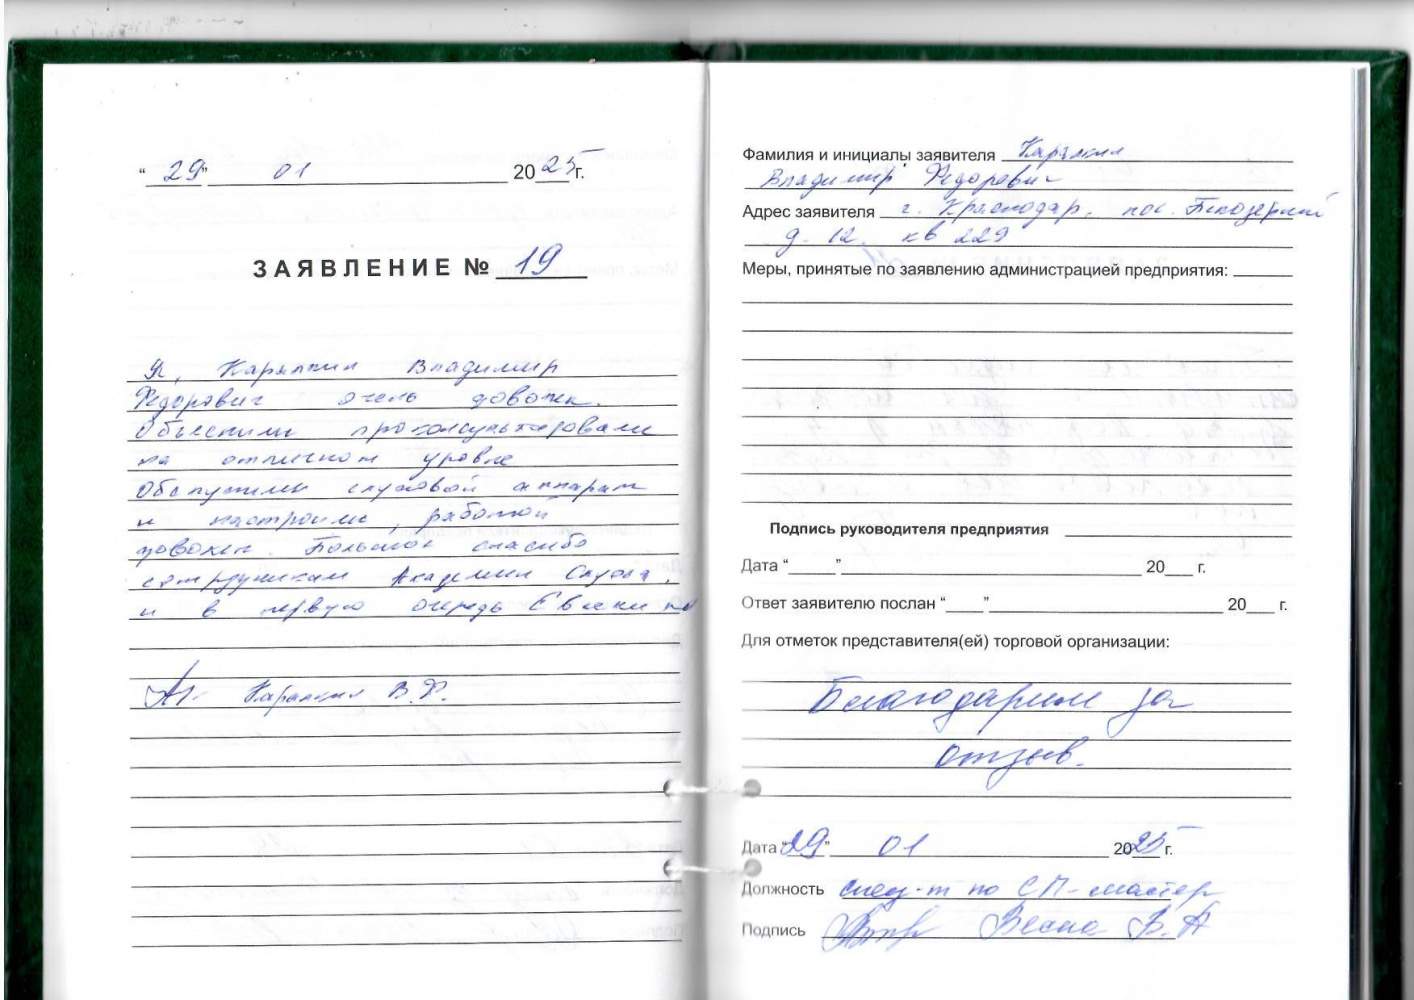 “29” 01 2025 г.
ЗАЯВЛЕНИЕ № 19
Я, Карякин Владимир
Федорович очень доволен.
Объяснили проконсультировали
на отличном уровне
Обслужили слуховой аппарат
и настроили, работой
доволен. Большое спасибо
сотрудникам Академии Слуха,
и в первую очередь
Карякин В.Ф.
Фамилия и инициалы заявителя Карякин
Владимир Федорович
Адрес заявителя г. Краснодар, пос. Белозерный
д. 12 кв 229
Меры, принятые по заявлению администрацией предприятия:
Подпись руководителя предприятия
Дата “ ” 20 г.
Ответ заявителю послан “ ” 20 г.
Для отметок представителя(ей) торговой организации:
Благодарим за
отзыв.
Дата “29” 01 2025 г.
Должность спец-т по СП-мастер
Подпись